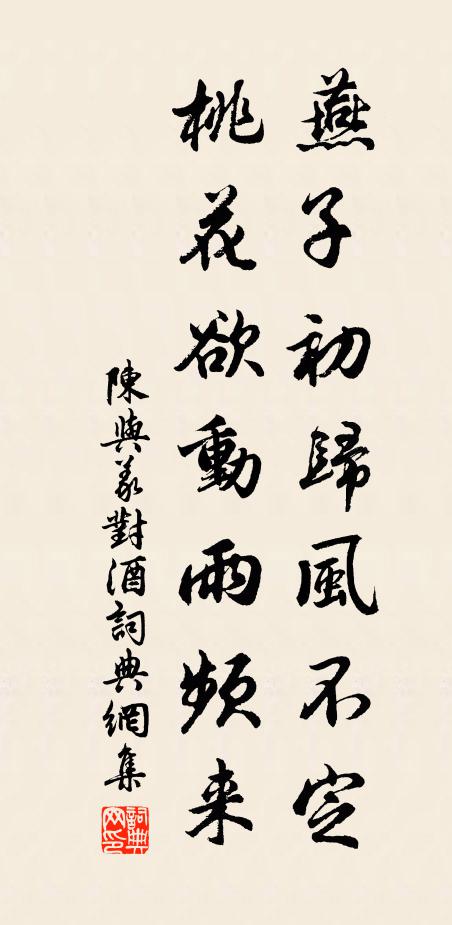 燕子初歸風不定
桃花欲動雨頻来
陳與義對酒詞典網集
詞典
网印